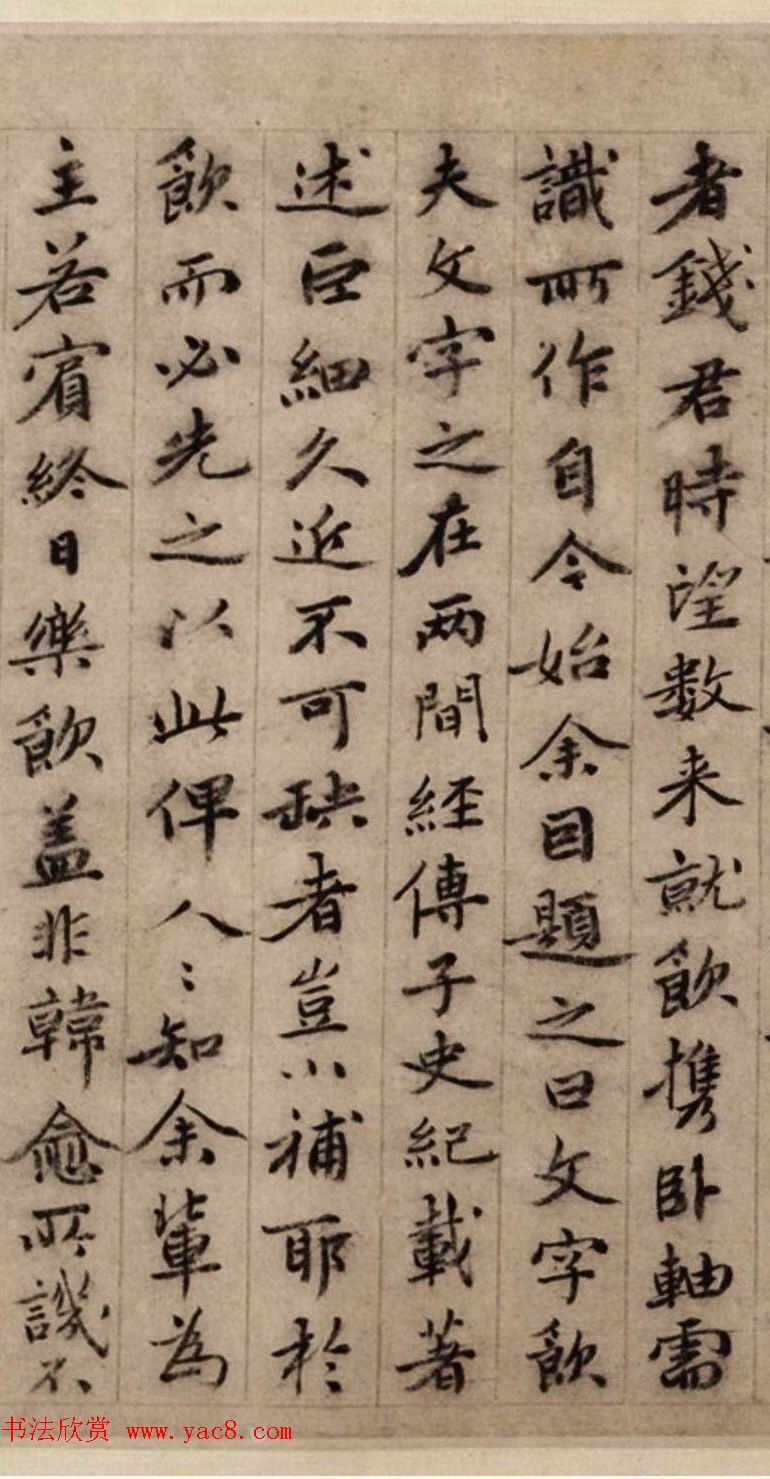 者錢君時望数来就飲携卧軸需
識所作自今始余因題之曰文字飲
夫文字之在两間經傳子史紀載著
述巨細久近不可缺者豈小補耶於
飲而必先之以此俾人〻知余軰為
主若賔終日樂飲盖非韓愈所譏不
书法欣赏 www.yac8.com